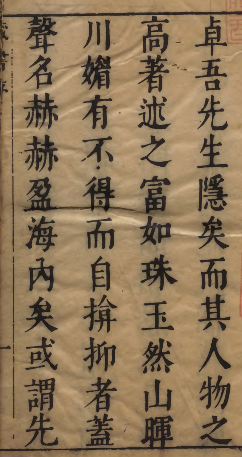 卓吾先生隱矣而其人物之
高著述之富如珠玉然山暉
川媚有不得而自揜抑者蓋
聲名赫赫盈海內矣或謂先